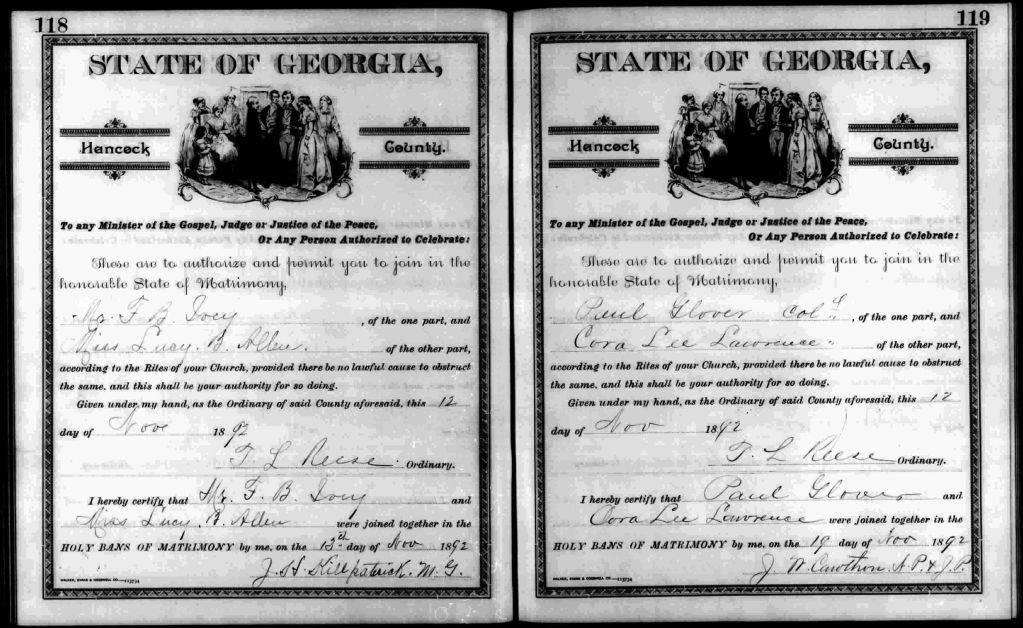 118
STATE OF GEORGIA,
Hancock County.
To any Minister of the Gospel, Judge or Justice of the Peace,
Or Any Person Authorized to Celebrate:
These are to authorize and permit you to join in the
honorable State of Matrimony,
Mr. F. B. Ivey, of the one part, and
Miss Lucy. B. Allen. of the other part,
according to the Rites of your Church, provided there be no lawful cause to obstruct
the same, and this shall be your authority for so doing.
Given under my hand, as the Ordinary of said County aforesaid, this 12
day of Nov 1892
T. L Reese. Ordinary.
I hereby certify that Mr. F. B. Ivey and
Miss Lucy. B. Allen were joined together in the
HOLY BANS OF MATRIMONY by me, on the 13th day of Nov 1892
J. H. Killpatrick. M. G.
WALKER, EVANS & COGSWELL CO.—113734
119
STATE OF GEORGIA,
Hancock County.
To any Minister of the Gospel, Judge or Justice of the Peace,
Or Any Person Authorized to Celebrate:
These are to authorize and permit you to join in the
honorable State of Matrimony,
Paul Glover Cold., of the one part, and
Cora Lee Lawrence of the other part,
according to the Rites of your Church, provided there be no lawful cause to obstruct
the same, and this shall be your authority for so doing.
Given under my hand, as the Ordinary of said County aforesaid, this 12
day of Nov 1892
T. L Reese Ordinary.
I hereby certify that Paul Glover and
Cora Lee Lawrence were joined together in the
HOLY BANS OF MATRIMONY by me, on the 19 day of Nov 1892
J. W. Cawthon. N. P. & J. P.
WALKER, EVANS & COGSWELL CO.—113734